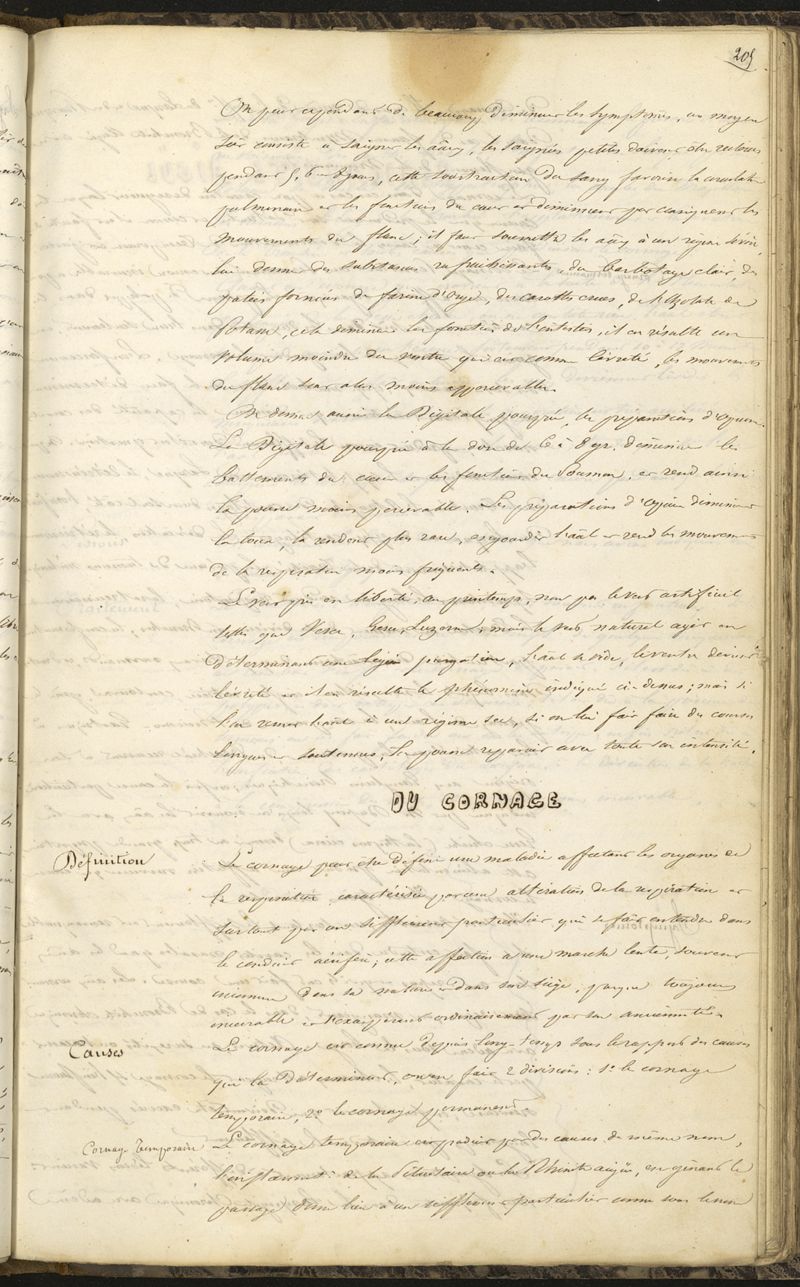 205
On peut cependant de beaucoup diminuer les symptômes, un moyen
sûr consiste à saigner les aâux, les saignées petites doivent être
pendant 5, 6 ou 8 jours, cette soustraction du sang favorise la circulation
pulmonaire et les fonctions du cœur et diminuent par conséquent les
mouvements du flanc; il faut soumettre les aâux à un régime
lui donne des substances rafraichissantes, du barbotage clair, des
formées de farine d'orge, des carottes crues, de l'azotate de
Potasse, cela diminue les fonctions de l'intestin, il en résulte un
volume moindre du ventre qui est comme levretté, les mouvements
du flanc sont alors moins appréciables.
On donne aussi la Digitale pourprée, les préparations d'opium.
La Digitale pourprée à la dose de 6 à 8 gr. diminue les
battements du cœur et les fonctions du Poumon, et rend ainsi
la pousse moins percevable. Les préparations d'opium diminuent
la toux, la rendent plus rare, l'aâl et rend les mouvements
de la respiration moins fréquents.
Le vert pris en liberté au printemps, non pas le vert artificiel
tels que Vesce, Luzerne, mais le vert naturel agit en
déterminant une légère purgation, l'aâl se vide, le ventre devient
levretté et il en résulte le phénomène indiqué ci-dessus; mais si
l'on remet l'aâl à un régime sec, si on lui fait faire des courses
longues et soutenues, la pousse reparait avec toute son intensité.
DU CORNAGE
Définition
Le cornage peut être défini une maladie affectant les organes de
la respiration caractérisée par une altération de la respiration et
surtout par un sifflement particulier qui se fait entendre dans
le conduit aérifère; cette affection a une marche lente, souvent
inconnue dans sa nature et dans son siège, presque toujours
incurable et s'exaspérant ordinairement par son ancienneté.
Causes
Le cornage est connu depuis long-temps sous le rapport des causes
qui le déterminent, on en fait 2 divisions: 1° le cornage
temporaire, 2° le cornage permanent
Cornage temporaire
Le cornage temporaire est produit par des causes de même nom,
l'inflammt: de la Pituitaire ou la Rhinite aigüe, en gênant le
passage donne lieu à un sifflement particulier connu sous le nom